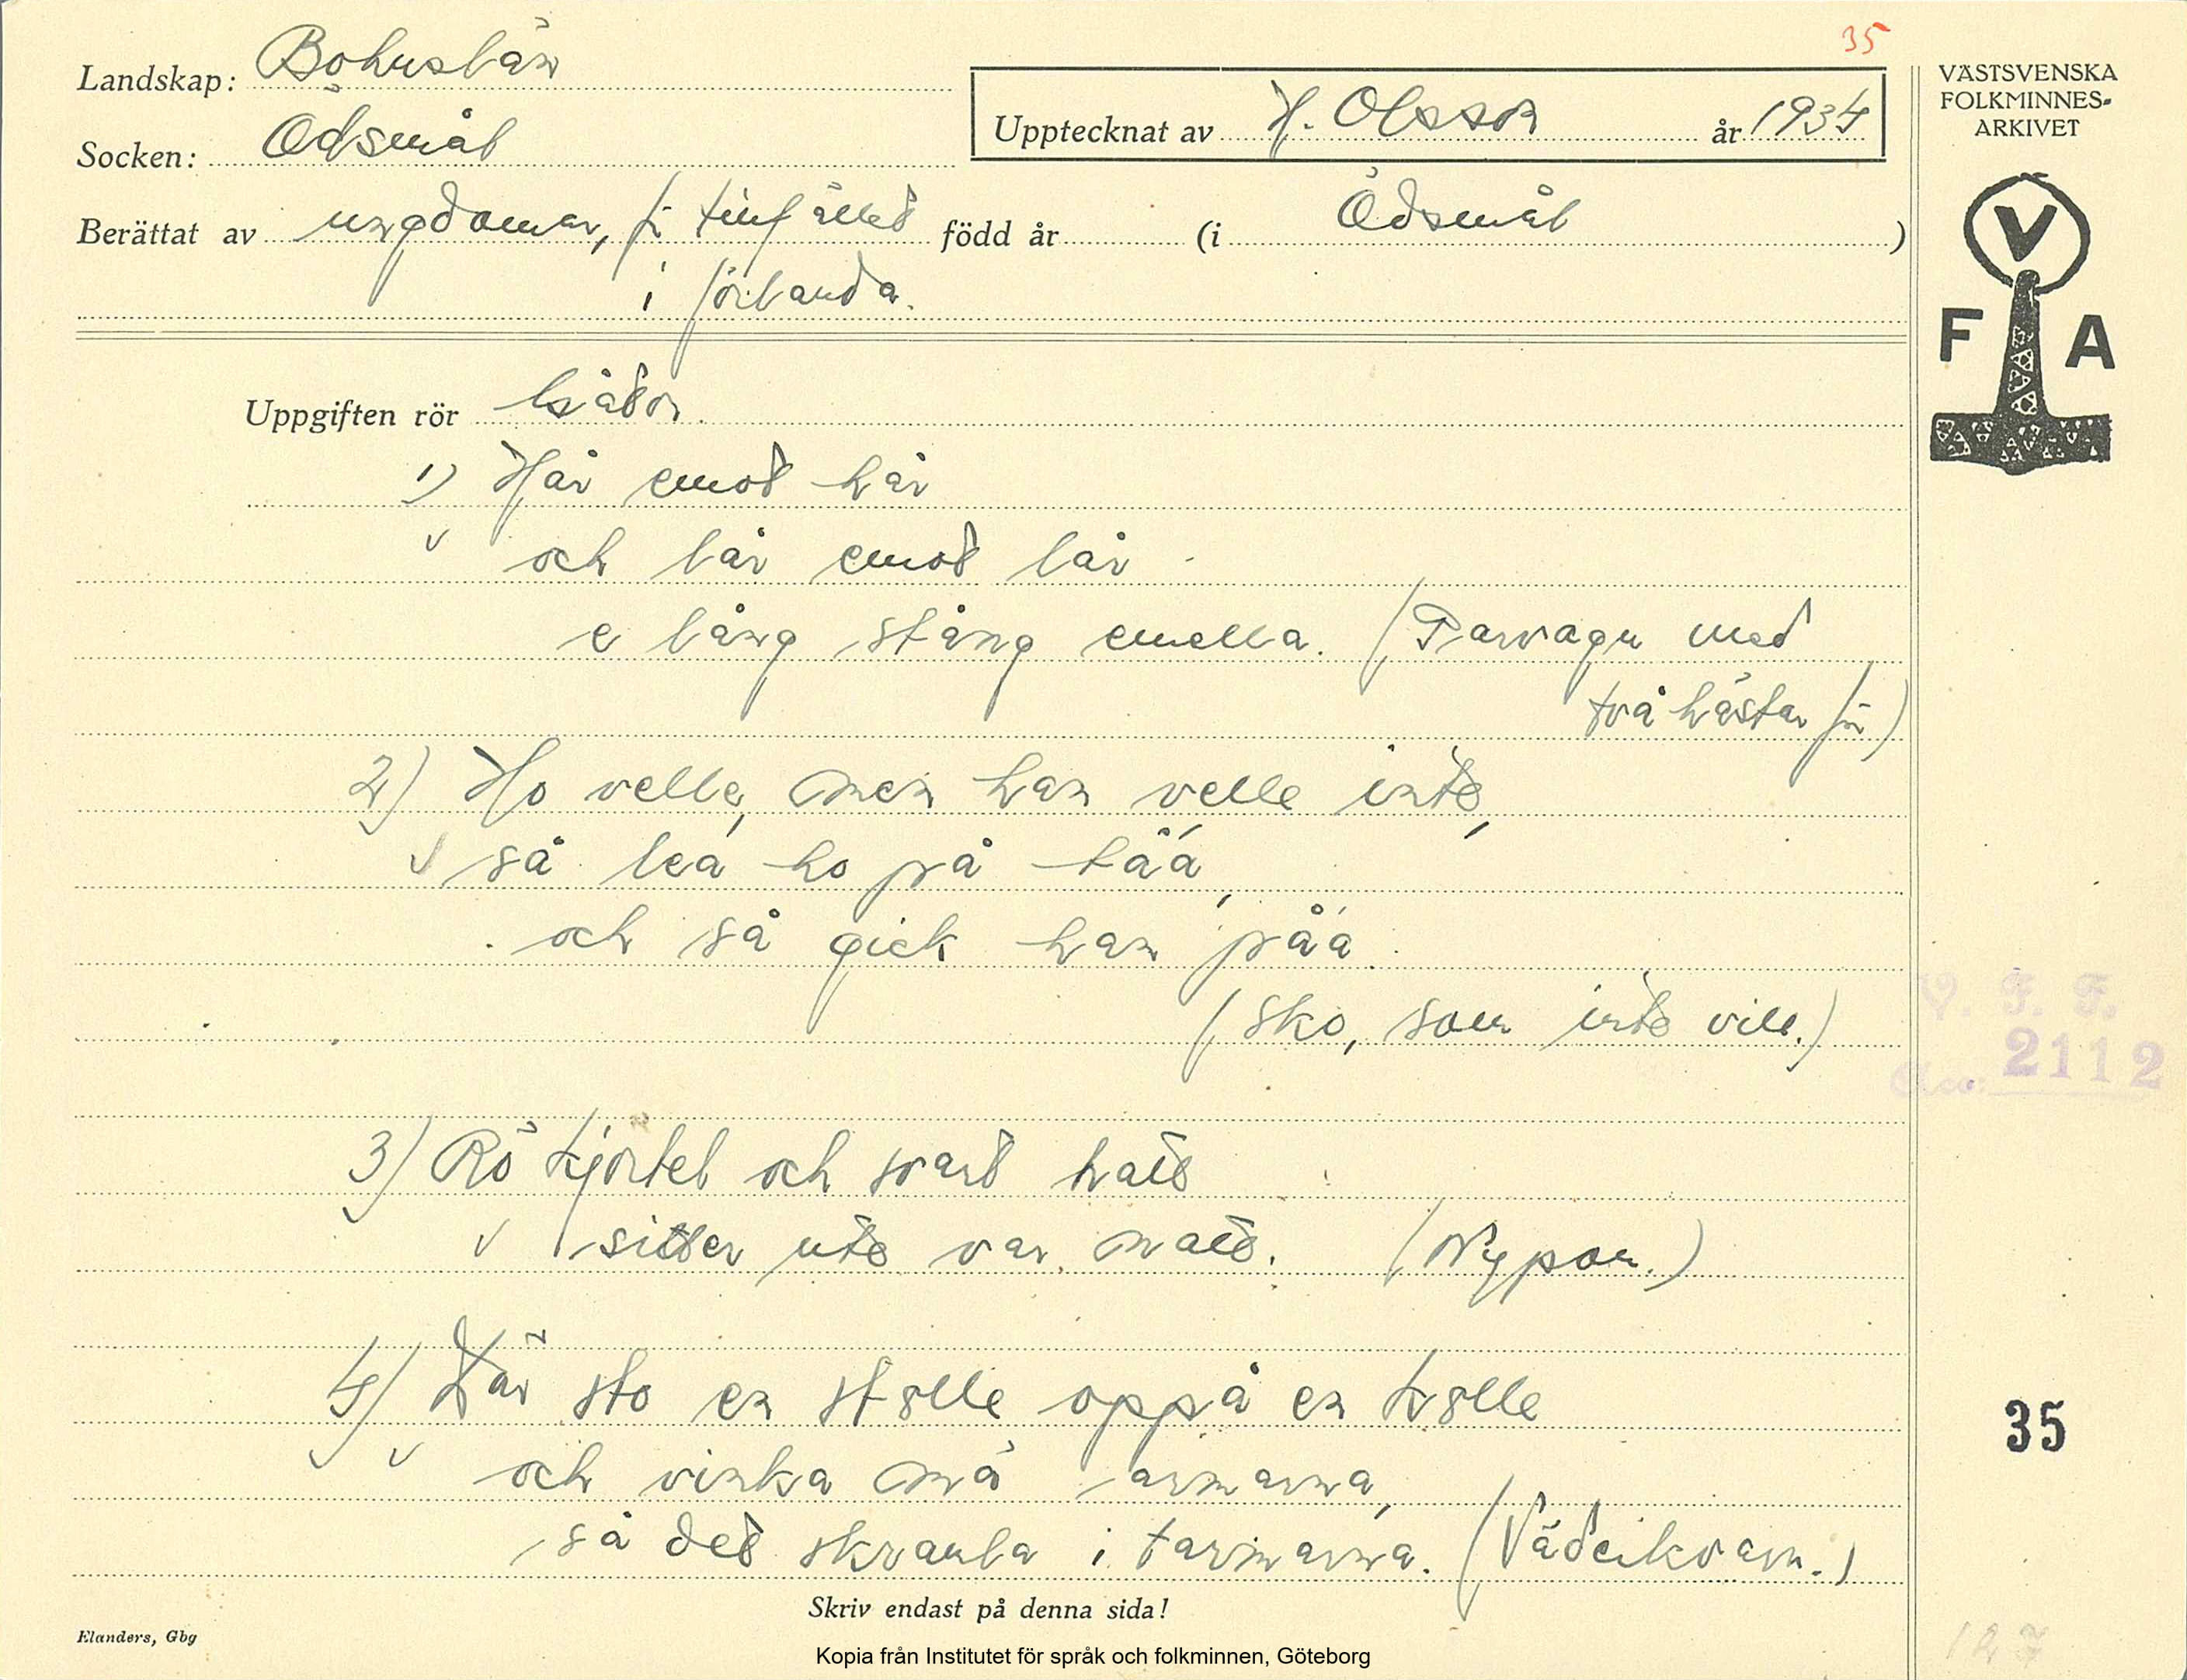 35
Landskap: Bohuslän
Socken: Ödsmål
Upptecknat av H. Olsson år 1934
Berättat av ungdomar, f. tillfället född år (i Ödsmål )
i Jörlanda.
VÄSTSVENSKA
FOLKMINNES-
ARKIVET
V
F A
Uppgiften rör Gåtor.
1) Hår emot hår
och lår emot lår
e lång stång emella. (Parvagn med
två hästar för)
2) Ho velle, men han velle inte,
så lea ho på tåá,
och så gick han påá.
(Sko, som inte vill.)
V. F. F.
2112
3) Rö kjortel och svart hatt
sitter ute var natt. (Nypon.)
4) Där sto en stolle oppå en kolle
och vinka mä armarna,
så det skramla i tarmarna. (Väderkvarn.)
35
Skriv endast på denna sida!
Elanders, Gbg
127
Kopia från Institutet för språk och folkminnen, Göteborg